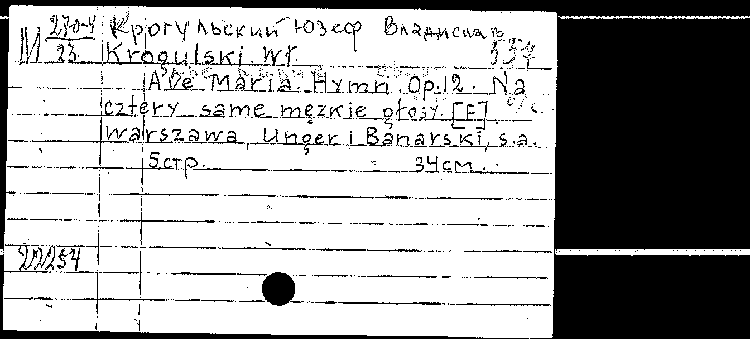 М 270-4/23 Крогульский Юзеф Владислав
Krogulski Wł. 537
Ave Maria. Hymn. Op.12. Na
cztery same męzkie głosy. [F]
Warszawa, Unger i Banarski, s.a.
5стр. 34см.
22254